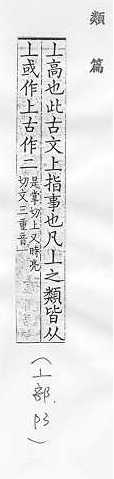 類篇
丄高也此古文上指事也凡丄之類皆从
丄或作上古作二是掌切上又時亮
切文三重音一
(丄部, P3)